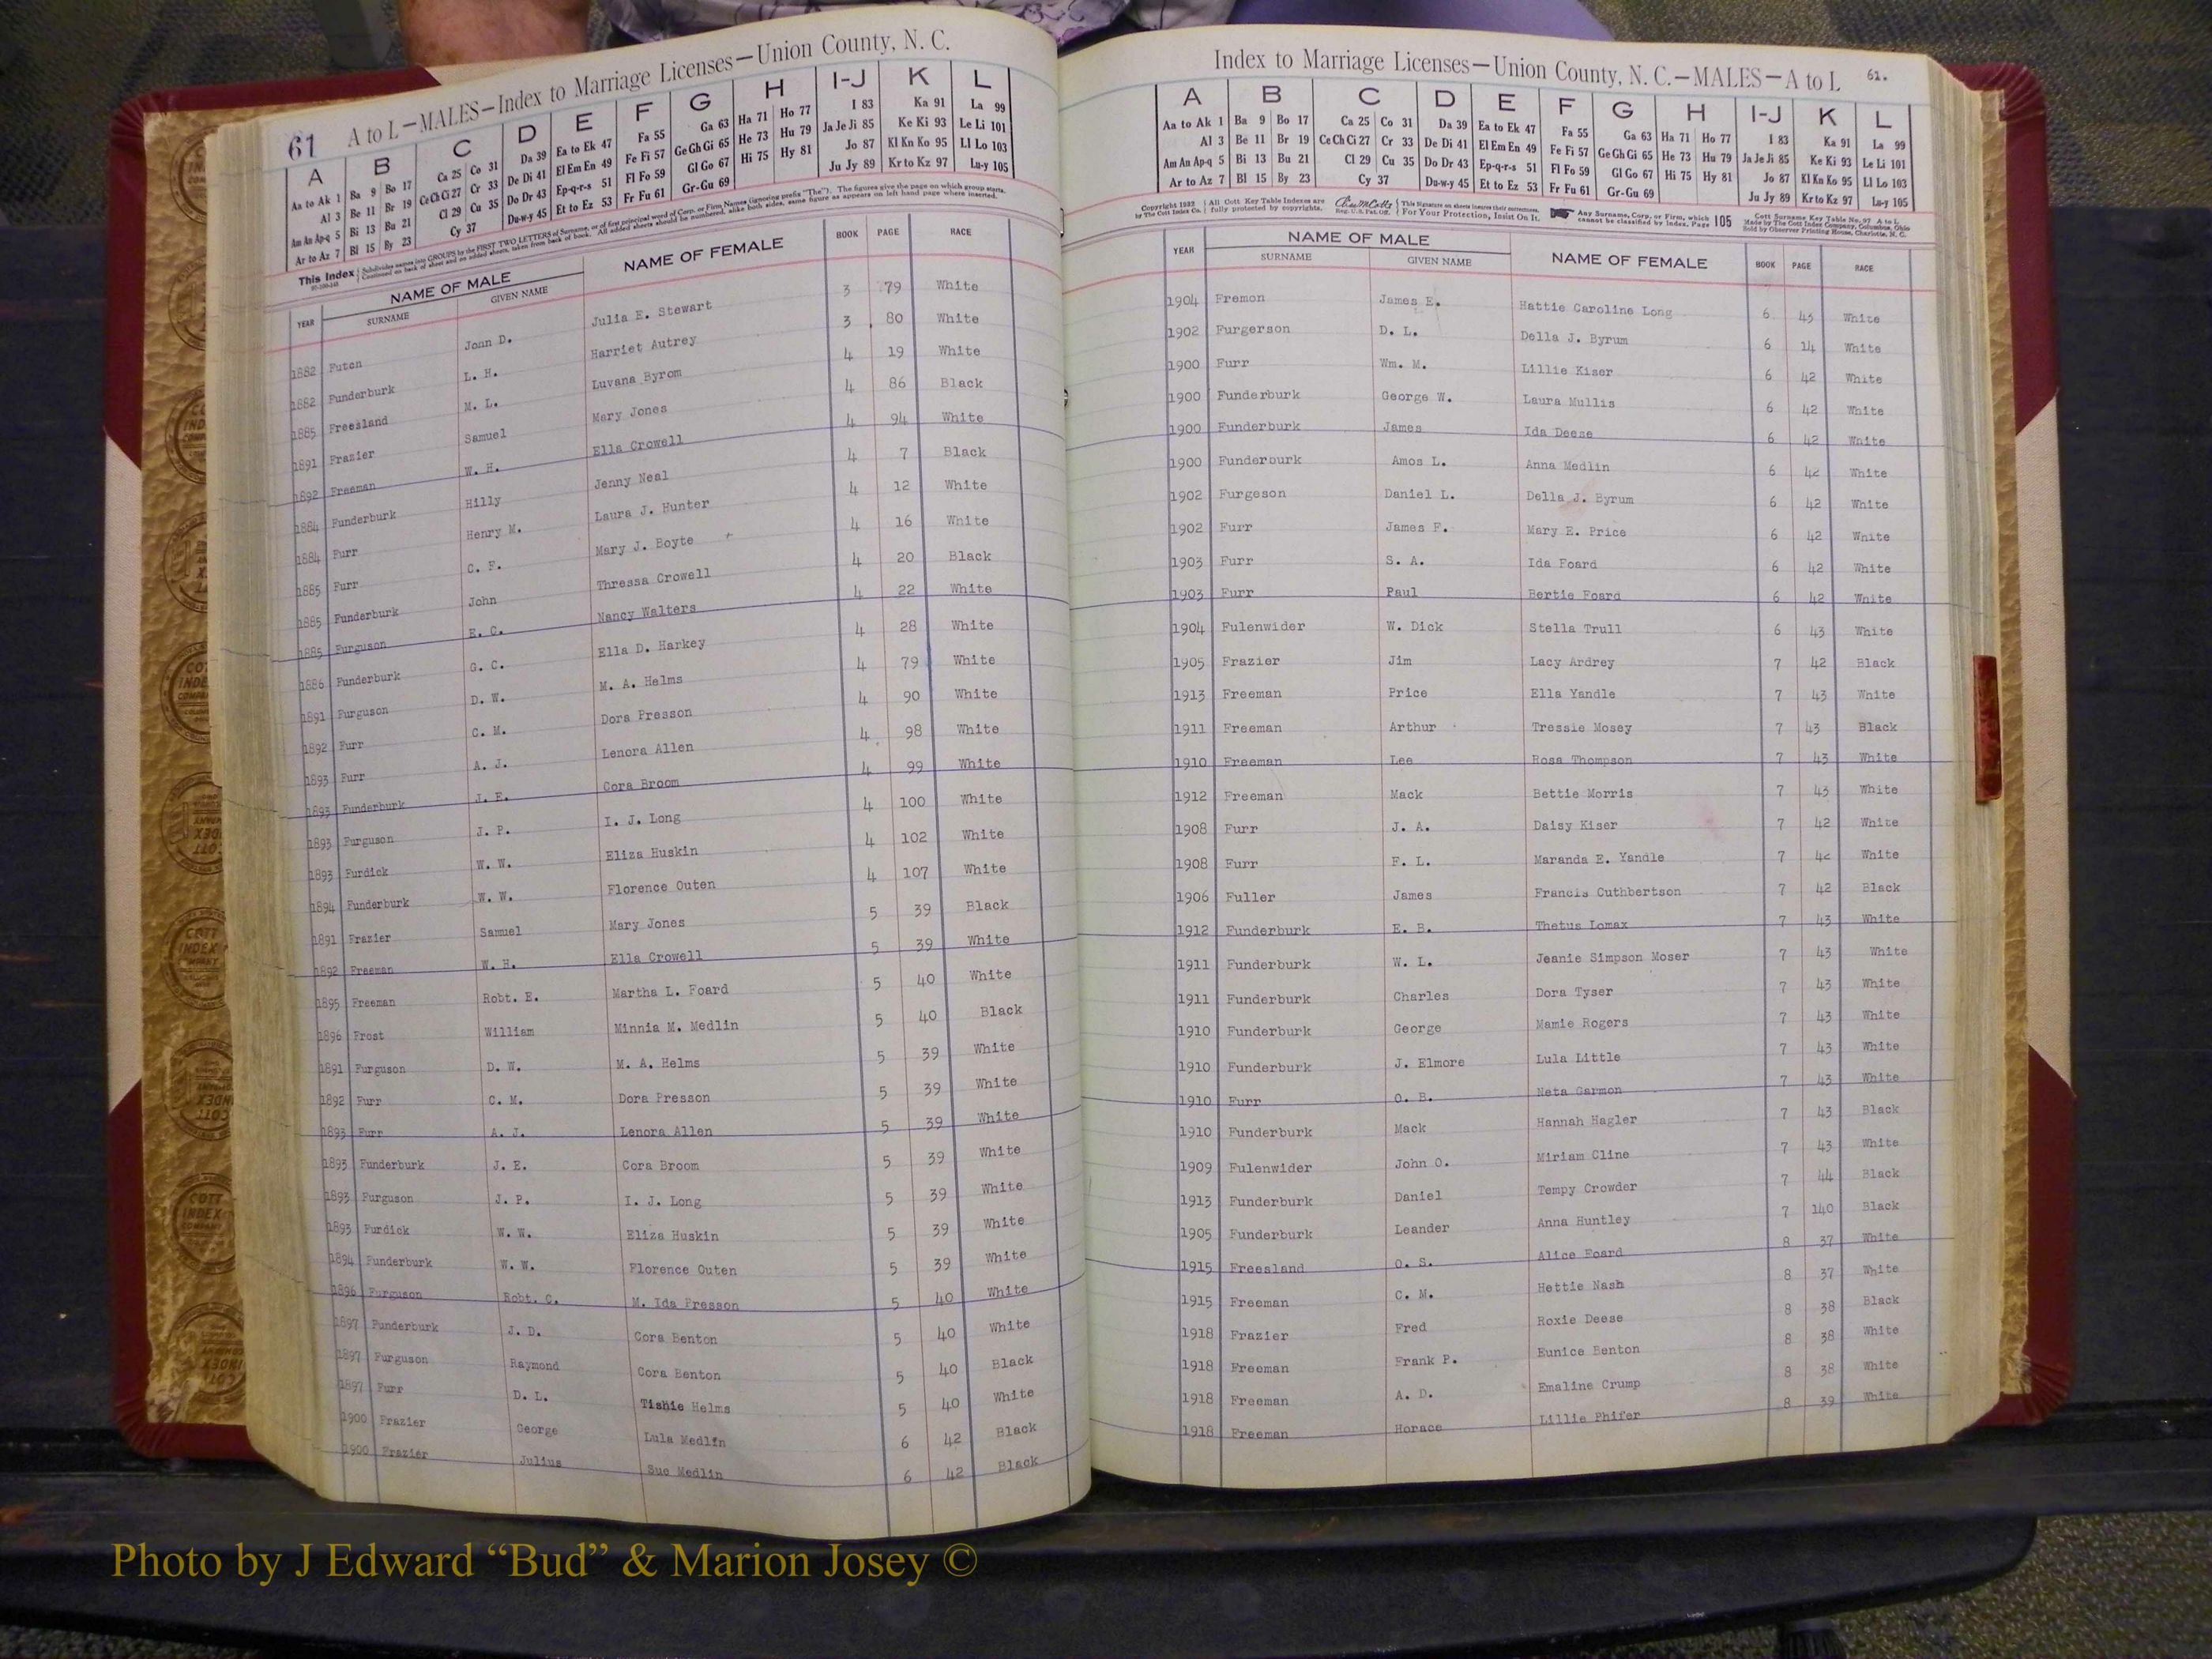 61 A to L—MALES—Index to Marriage Licenses—Union County, N. C.
A B C D E F G H I-J K L
Aa to Ak 1 Ba 9 Bo 17 Ca 25 Co 31 Da 39 Ea to Ek 47 Fa 55 Ga 63 Ha 71 Ho 77 I 83 Ka 91 La 99
Al 3 Be 11 Br 19 Ce Ch Ci 27 Cr 33 De Di 41 El Em En 49 Fe Fi 57 Ge Gh Gi 65 He 73 Hu 79 Ja Je Ji 85 Ke Ki 93 Le Li 101
Am An Ap-q 5 Bi 13 Bu 21 Cl 29 Cu 35 Do Dr 43 Ep-q-r-s 51 Fl Fo 59 Gl Go 67 Hi 75 Hy 81 Jo 87 Kl Kn Ko 95 Ll Lo 103
Ar to Az 7 Bl 15 By 23 Cy 37 Du-w-y 45 Et to Ez 53 Fr Fu 61 Gr-Gu 69 Ju Jy 89 Kr to Kz 97 Lu-y 105
This Index Subdivides names into GROUPS by the FIRST TWO LETTERS of Surname, or of first principal word of Corp. or Firm Names (ignoring prefix "The"). The figures give the page on which group starts.
Continued on back of sheet and on added sheets, taken from back of book. All added sheets should be numbered, alike both sides, same figure as appears on left hand page where inserted.
YEAR NAME OF MALE SURNAME GIVEN NAME NAME OF FEMALE BOOK PAGE RACE
1882 Futch John D. Julia E. Stewart 3 79 White
1882 Funderburk L. H. Harriet Autrey 3 80 White
1885 Freesland M. L. Luvana Byrom 4 19 White
1891 Frazier Samuel Mary Jones 4 86 Black
1892 Freeman W. H. Ella Crowell 4 94 White
1884 Funderburk Hilly Jenny Neal 4 7 Black
1884 Furr Henry M. Laura J. Hunter 4 12 White
1885 Furr C. F. Mary J. Boyte 4 16 White
1885 Funderburk John Thressa Crowell 4 20 Black
1885 Furguson E. C. Nancy Walters 4 22 White
1886 Funderburk G. C. Ella D. Harkey 4 28 White
1891 Furguson D. W. M. A. Helms 4 79 White
1892 Furr C. M. Dora Presson 4 90 White
1893 Furr A. J. Lenora Allen 4 98 White
1893 Funderburk J. E. Cora Broom 4 99 White
1893 Furguson J. P. I. J. Long 4 100 White
1893 Furdick W. W. Eliza Huskin 4 102 White
1894 Funderburk W. W. Florence Outen 4 107 White
1891 Frazier Samuel Mary Jones 5 39 Black
1892 Freeman W. H. Ella Crowell 5 39 White
1895 Freeman Robt. E. Martha L. Foard 5 40 White
1896 Frost William Minnia M. Medlin 5 40 Black
1891 Furguson D. W. M. A. Helms 5 39 White
1892 Furr C. M. Dora Presson 5 39 White
1893 Furr A. J. Lenora Allen 5 39 White
1893 Funderburk J. E. Cora Broom 5 39 White
1893 Furguson J. P. I. J. Long 5 39 White
1893 Furdick W. W. Eliza Huskin 5 39 White
1894 Funderburk W. W. Florence Outen 5 39 White
1896 Furguson Robt. C. M. Ida Presson 5 40 White
1897 Funderburk J. D. Cora Benton 5 40 White
1897 Furguson Raymond Cora Benton 5 40 Black
1897 Furr D. L. Tishie Helms 5 40 White
1900 Frazier George Lula Medlin 6 42 Black
1900 Frazier Julius Sue Medlin 6 42 Black
Index to Marriage Licenses—Union County, N. C.—MALES—A to L 61.
A B C D E F G H I-J K L
Aa to Ak 1 Ba 9 Bo 17 Ca 25 Co 31 Da 39 Ea to Ek 47 Fa 55 Ga 63 Ha 71 Ho 77 I 83 Ka 91 La 99
Al 3 Be 11 Br 19 Ce Ch Ci 27 Cr 33 De Di 41 El Em En 49 Fe Fi 57 Ge Gh Gi 65 He 73 Hu 79 Ja Je Ji 85 Ke Ki 93 Le Li 101
Am An Ap-q 5 Bi 13 Bu 21 Cl 29 Cu 35 Do Dr 43 Ep-q-r-s 51 Fl Fo 59 Gl Go 67 Hi 75 Hy 81 Jo 87 Kl Kn Ko 95 Ll Lo 103
Ar to Az 7 Bl 15 By 23 Cy 37 Du-w-y 45 Et to Ez 53 Fr Fu 61 Gr-Gu 69 Ju Jy 89 Kr to Kz 97 Lu-y 105
Copyright 1932 All Cott Key Table Indexes are This Signature on sheets insures their correctness. Any Surname, Corp. or Firm, which 105 Cott Surname Key Table No. 97 A to L
by The Cott Index Co. fully protected by copyrights. Reg. U. S. Pat. Off. For Your Protection, Insist On It. cannot be classified by Index, Page Made by The Cott Index Company, Columbus, Ohio
Sold by Observer Printing House, Charlotte, N. C.
YEAR NAME OF MALE SURNAME GIVEN NAME NAME OF FEMALE BOOK PAGE RACE
1904 Fremon James E. Hattie Caroline Long 6 43 White
1902 Furgerson D. L. Della J. Byrum 6 14 White
1900 Furr Wm. M. Lillie Kiser 6 42 White
1900 Funderburk George W. Laura Mullis 6 42 White
1900 Funderburk James Ida Deese 6 42 White
1900 Funderburk Amos L. Anna Medlin 6 42 White
1902 Furgeson Daniel L. Della J. Byrum 6 42 White
1902 Furr James F. Mary E. Price 6 42 White
1903 Furr S. A. Ida Foard 6 42 White
1903 Furr Paul Bertie Foard 6 42 White
1904 Fulenwider W. Dick Stella Trull 6 43 White
1905 Frazier Jim Lacy Ardrey 7 42 Black
1913 Freeman Price Ella Yandle 7 43 White
1911 Freeman Arthur Tressie Mosey 7 43 Black
1910 Freeman Lee Rosa Thompson 7 43 White
1912 Freeman Mack Bettie Morris 7 43 White
1908 Furr J. A. Daisy Kiser 7 42 White
1908 Furr F. L. Maranda E. Yandle 7 42 White
1906 Fuller James Francis Cuthbertson 7 42 Black
1912 Funderburk E. B. Thetus Lomax 7 43 White
1911 Funderburk W. L. Jeanie Simpson Moser 7 43 White
1911 Funderburk Charles Dora Tyser 7 43 White
1910 Funderburk George Mamie Rogers 7 43 White
1910 Funderburk J. Elmore Lula Little 7 43 White
1910 Furr O. B. Neta Garmon 7 43 White
1910 Funderburk Mack Hannah Hagler 7 43 Black
1909 Fulenwider John O. Miriam Cline 7 43 White
1913 Funderburk Daniel Tempy Crowder 7 44 Black
1905 Funderburk Leander Anna Huntley 7 140 Black
1915 Freesland O. S. Alice Foard 8 37 White
1915 Freeman C. M. Hettie Nash 8 37 White
1918 Frazier Fred Roxie Deese 8 38 Black
1918 Freeman Frank P. Eunice Benton 8 38 White
1918 Freeman A. D. Emaline Crump 8 38 White
1918 Freeman Horace Lillie Phifer 8 39 White
Photo by J Edward “Bud” & Marion Josey ©